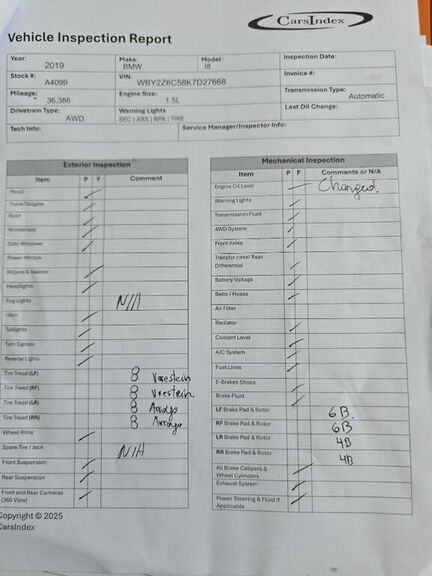 CARSINDEX
Vehicle Inspection Report
Year: 2019 Make: BMW Model: I8 Inspection Date:
Stock #: A4099 VIN: WBY2Z6C58K7D27668 Invoice #:
Mileage: 36,386 Engine Size: 1.5L Transmission Type: Automatic
Drivetrain Type: AWD Warning Lights SEC | ABS | BRK | TIRE Last Oil Change:
Tech Info: Service Manager/Inspector Info:
Exterior Inspection
Item P F Comment
Hood
Trunk/Tailgate
Roof
Windshield
Side Windows
Power Mirrors
Wipers & Washer
Headlights
Fog Lights N/A
Horn
Taillights
Turn Signals
Reverse Lights
Tire Tread (LF) 8 Vrestein
Tire Tread (RF) 8 Vrestein
Tire Tread (LR) 8 Arroyo
Tire Tread (RR) 8 Arroyo
Wheel Rims
Spare Tire / Jack N/A
Front Suspension
Rear Suspension
Front and Rear Cameras
(360 View)
Mechanical Inspection
Item P F Comments or N/A
Engine Oil Level Changed
Warning Lights
Transmission Fluid
4WD System
Front Axles
Transfer case/ Rear
Differential
Battery Voltage
Belts / Hoses
Air Filter
Radiator
Coolant Level
A/C System
Fuel Lines
E-Brakes Shoes
Brake Fluid
LF Brake Pad & Rotor 6B
RF Brake Pad & Rotor 6B
LR Brake Pad & Rotor 4B
RR Brake Pad & Rotor 4B
All Brake Calipers &
Wheel Cylinders
Exhaust System
Power Steering & Fluid if
Applicable
Copyright © 2025
CarsIndex